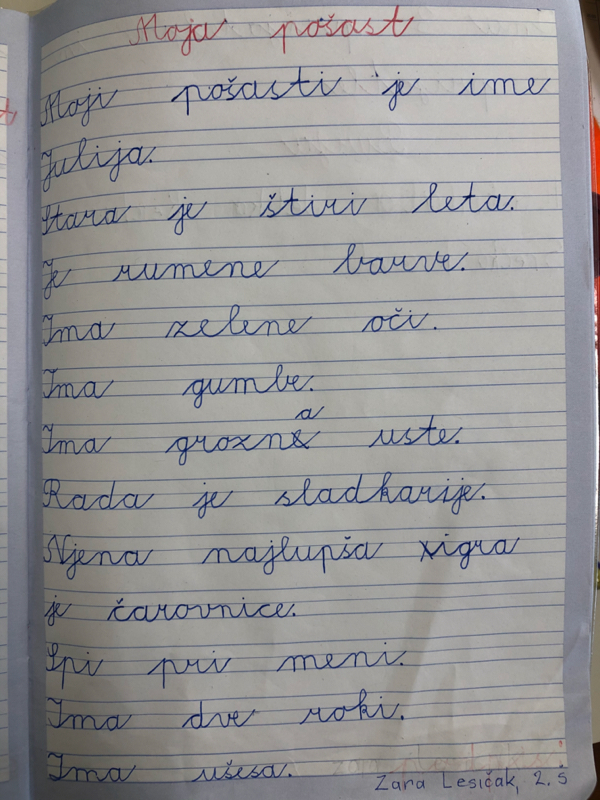 Moja pošast
Moji pošasti je ime
Julija.
Stara je štiri leta.
Je rumene barve.
Ima zelene oči.
Ima gumbe.
Ima grozna uste.
Rada je sladkarije.
Njena najlupša igra
je čarovnice.
Spi pri meni.
Ima dve roki.
Ima ušesa.
Zara Lesičak, 2. S